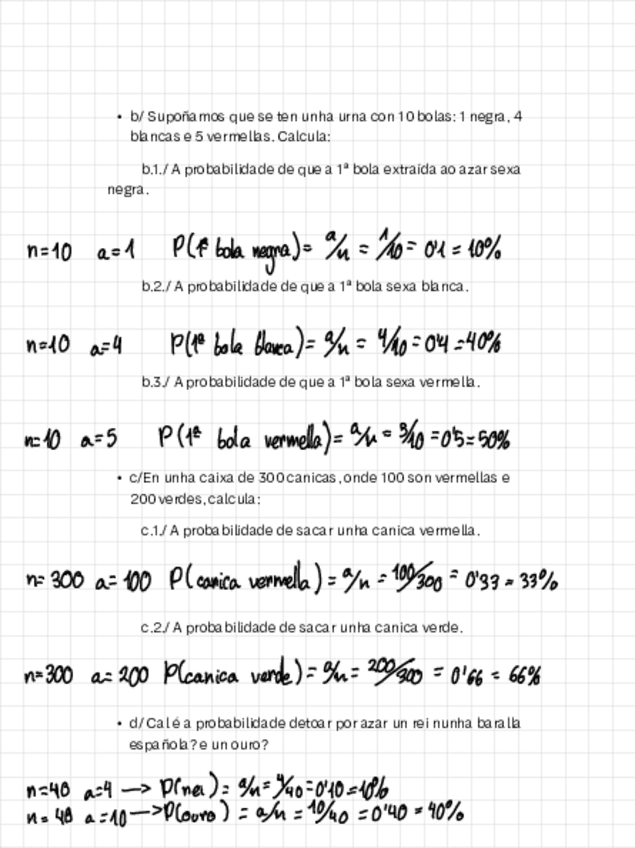 • b/ Supoñamos que se ten unha urna con 10 bolas: 1 negra, 4
blancas e 5 vermellas. Calcula:
b.1./ A probabilidade de que a 1ª bola extraída ao azar sexa
negra.
n=10 a=1 P(1ª bola negra)= a/n = 1/10 = 0'1 = 10%
b.2./ A probabilidade de que a 1ª bola sexa blanca.
n=10 a=4 P(1ª bola blanca)= a/n = 4/10 = 0'4 = 40%
b.3./ A probabilidade de que a 1ª bola sexa vermella.
n=10 a=5 P(1ª bola vermella)= a/n = 5/10 = 0'5 = 50%
• c/En unha caixa de 300 canicas, onde 100 son vermellas e
200 verdes, calcula:
c.1./ A probabilidade de sacar unha canica vermella.
n= 300 a= 100 P(canica vermella) = a/n = 100/300 = 0'33 = 33%
c.2./ A probabilidade de sacar unha canica verde.
n=300 a= 200 P(canica verde) = a/n = 200/300 = 0'66 = 66%
• d/ Cal é a probabilidade de toar por azar un rei nunha baralla
española? e un ouro?
n=40 a=4 —> P(rei) = a/n = 4/40 = 0'10 = 10%
n= 40 a=10 —> P(ouro) = a/n = 10/40 = 0'40 = 40%